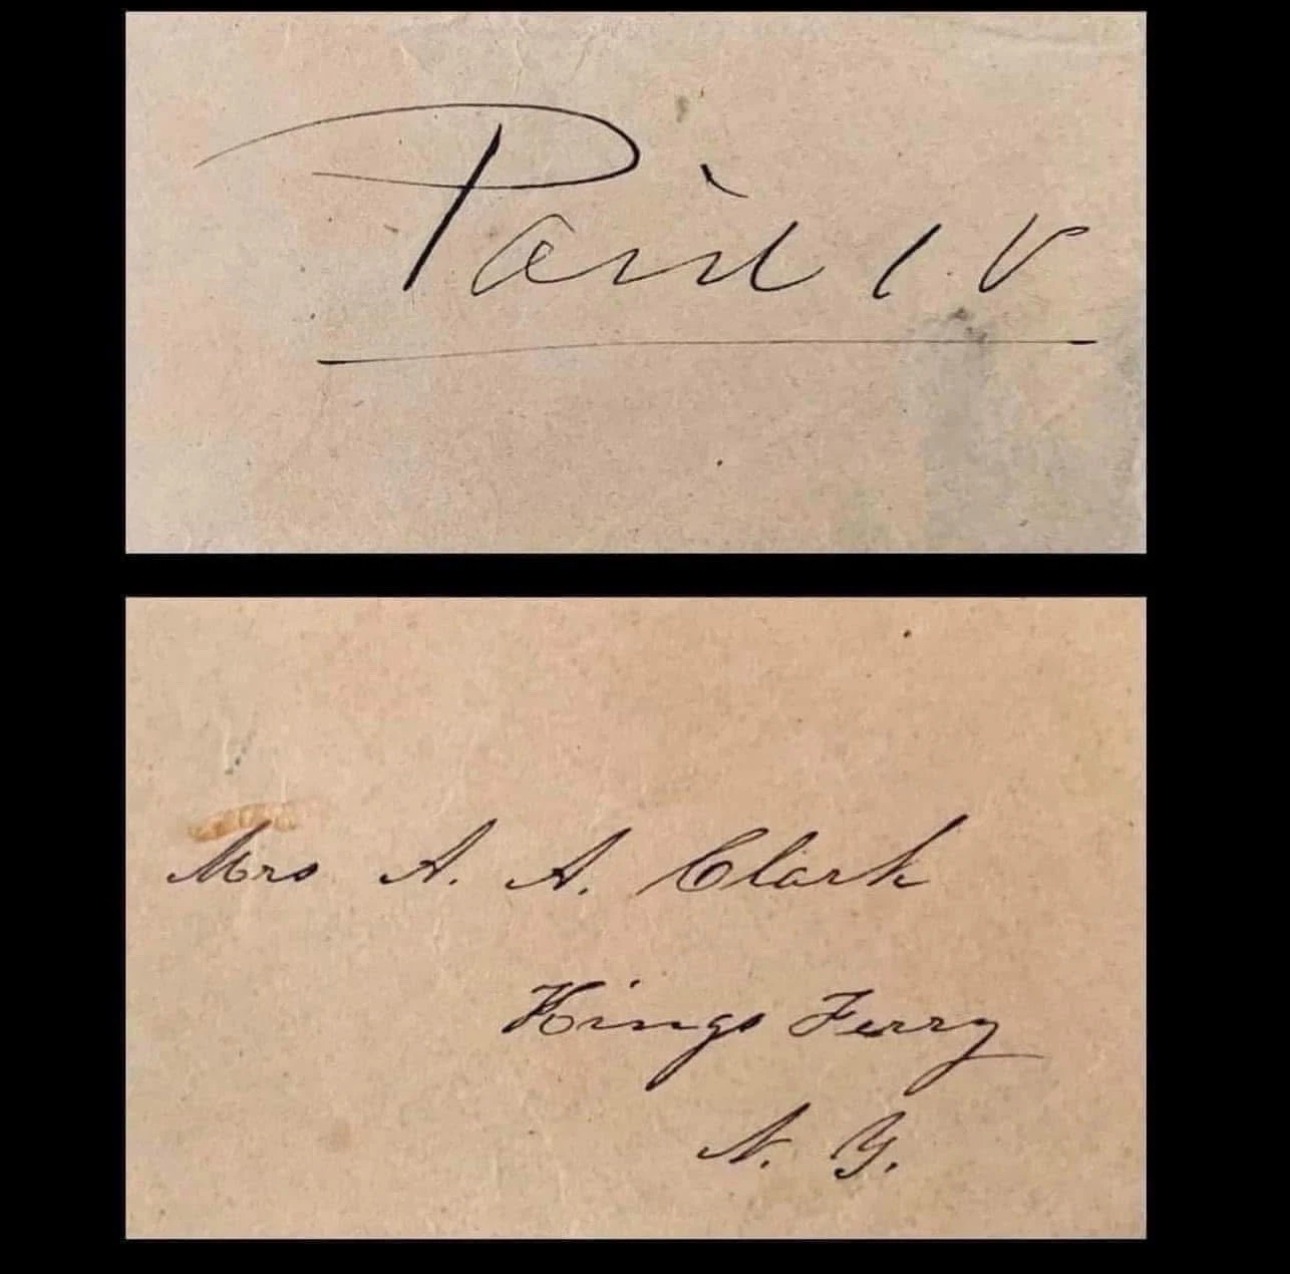 Paid
Mrs A. A. Clark
Kings Ferry
N. Y.